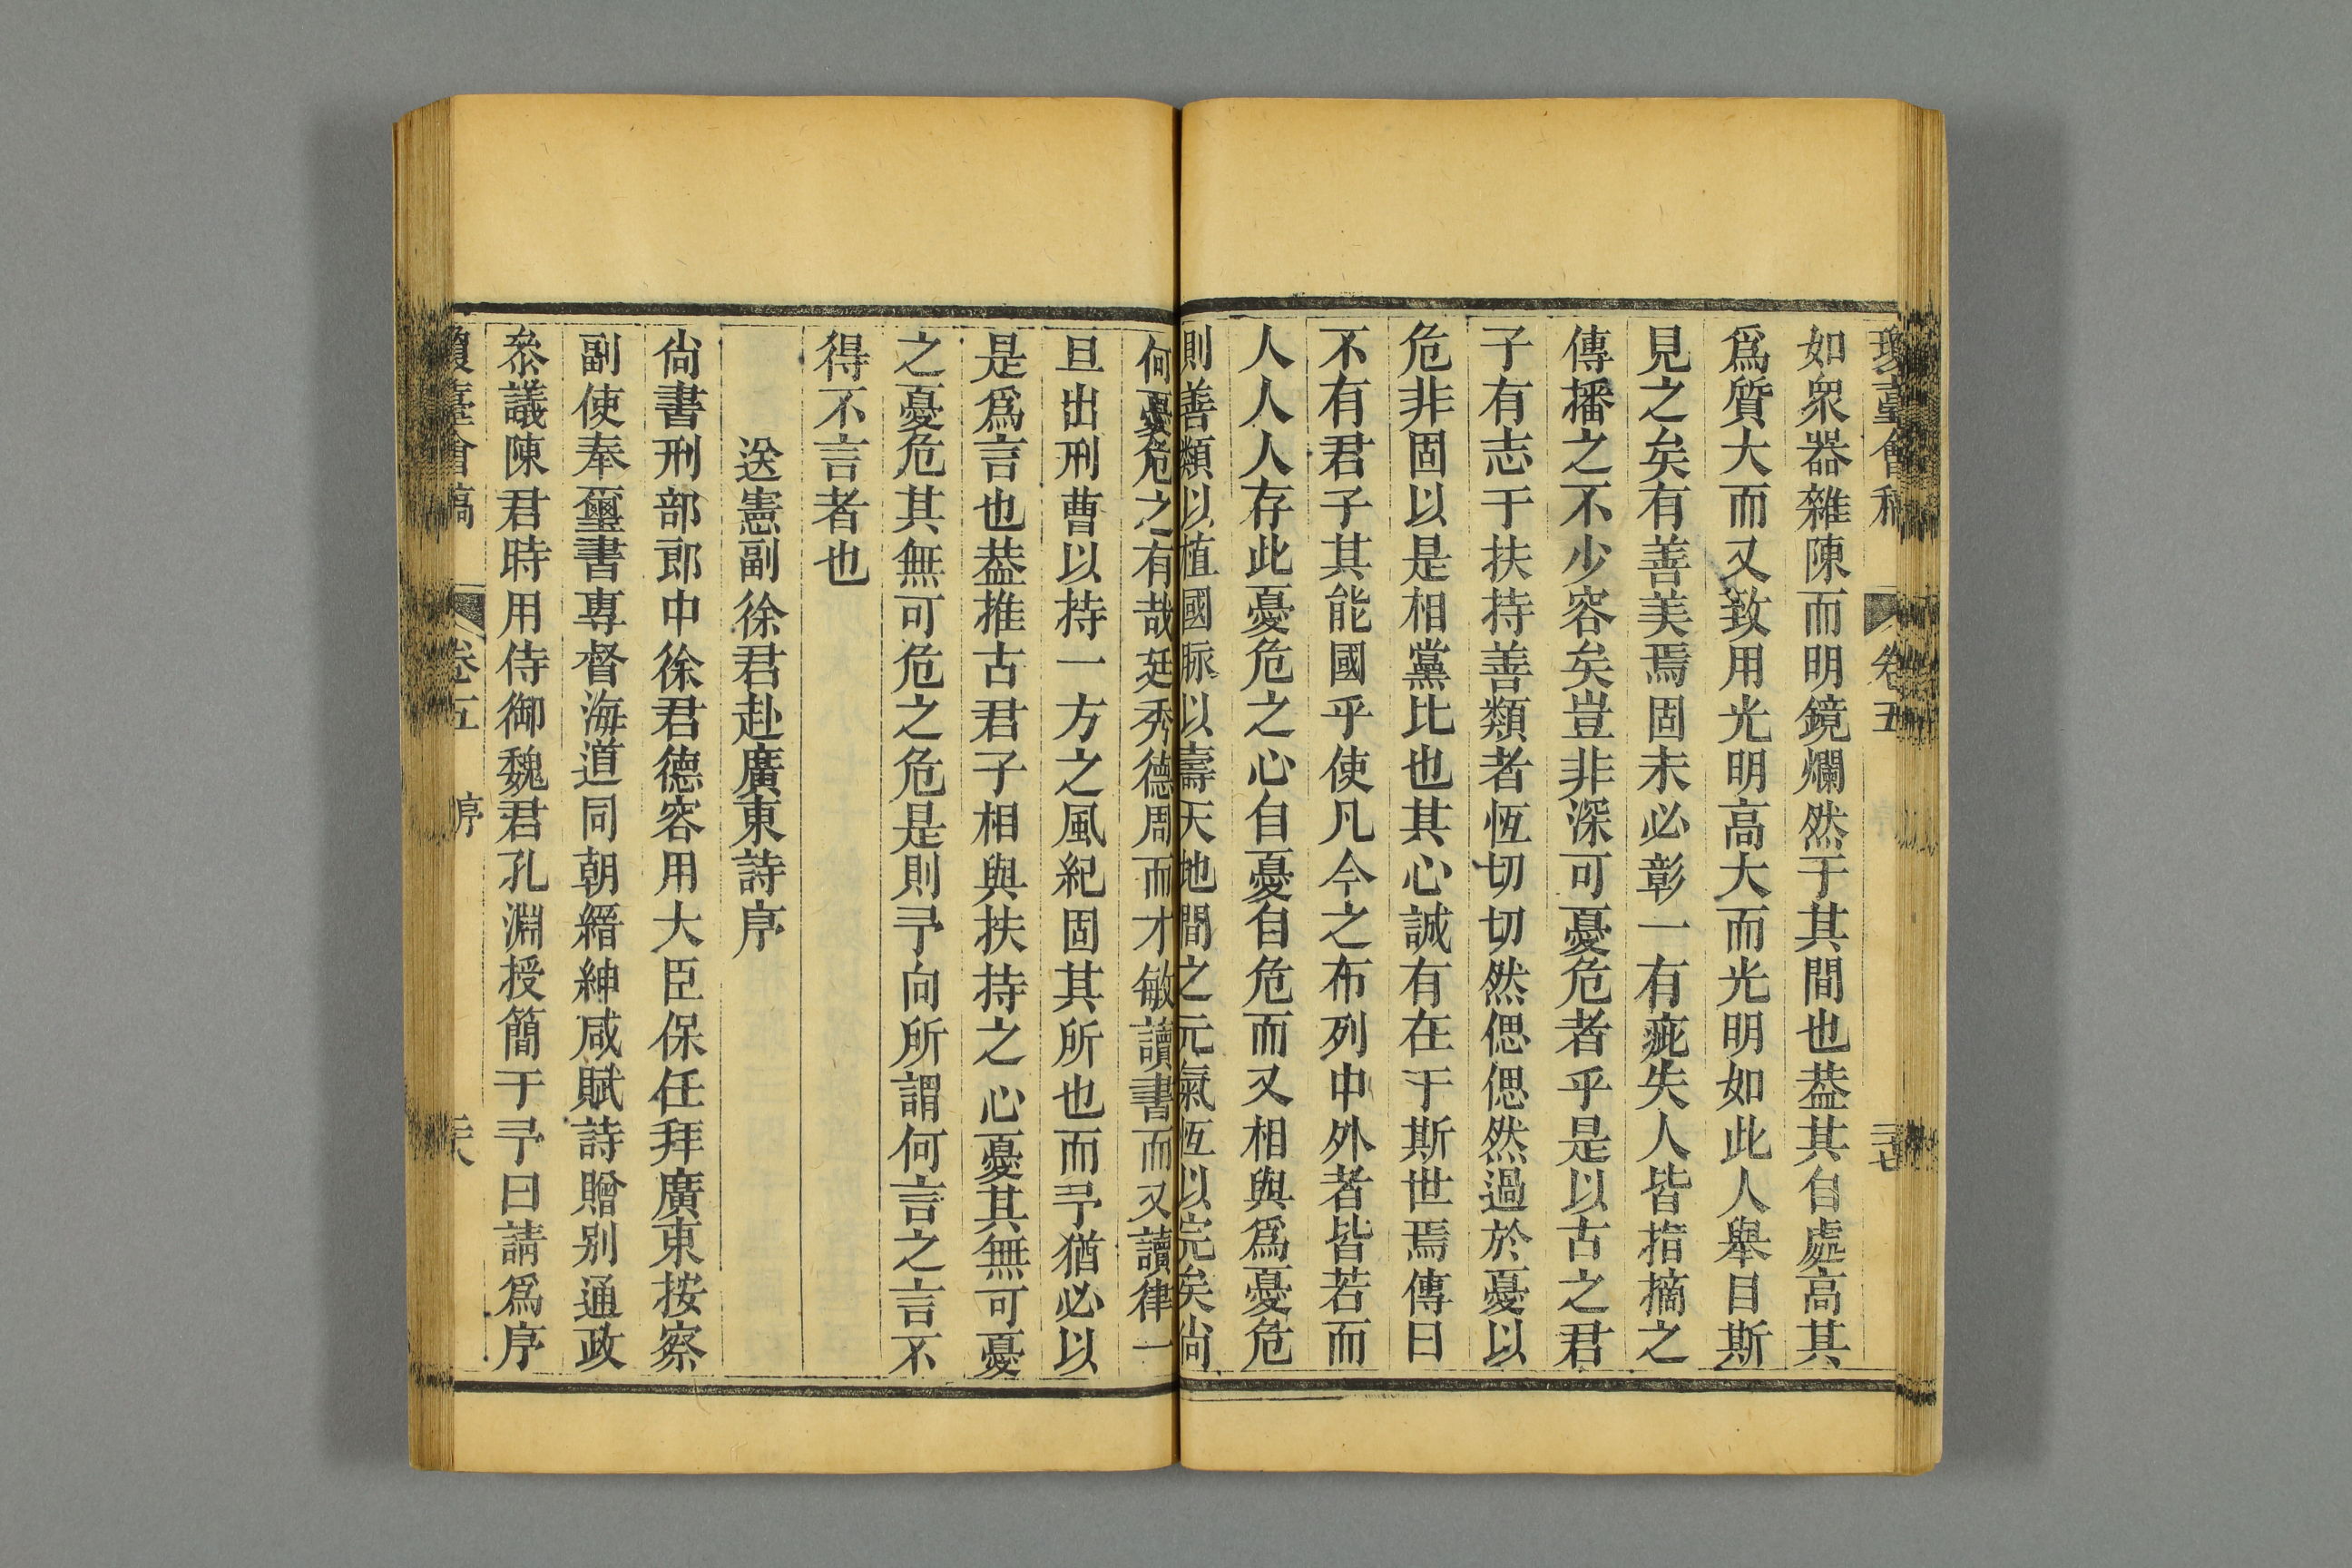 瓊臺會稿 卷五 序 三七
如衆器雜陳而明鏡爛然于其間也葢其自處高其
爲質大而又致用光明高大而光明如此人舉目斯
見之矣有善美焉固未必彰一有疵失人皆指摘之
傳播之不少容矣豈非深可憂危者乎是以古之君
子有志于扶持善類者恆切切然偲偲然過於憂以
危非固以是相黨比也其心誠有在于斯世焉傳曰
不有君子其能國乎使凡今之布列中外者皆若而
人人人存此憂危之心自憂自危而又相與爲憂危
則善類以植國脉以壽天地間之元氣恆以完矣尙
何憂危之有哉廷秀德周而才敏讀書而又讀律一
旦出刑曹以持一方之風紀固其所也而予猶必以
是爲言也葢推古君子相與扶持之心憂其無可憂
之憂危其無可危之危是則予向所謂何言之言不
得不言者也
送憲副徐君赴廣東詩序
尙書刑部郎中徐君德容用大臣保任拜廣東按察
副使奉璽書專督海道同朝縉紳咸賦詩贈别通政
叅議陳君時用侍御魏君孔淵授簡于予曰請爲序
瓊臺會稿 卷五 序 三八